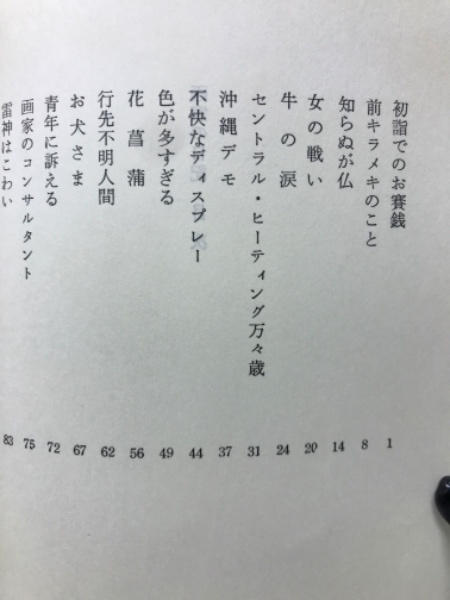 初詣でのお賽銭 1
前キラメキのこと 8
知らぬが仏 14
女の戦い 20
牛の涙 24
セントラル・ヒーティング万々歳 31
沖縄デモ 37
不快なディスプレー 44
色が多すぎる 49
花菖蒲 56
行先不明人間 62
お犬さま 67
青年に訴える 72
画家のコンサルタント 75
雷神はこわい 83